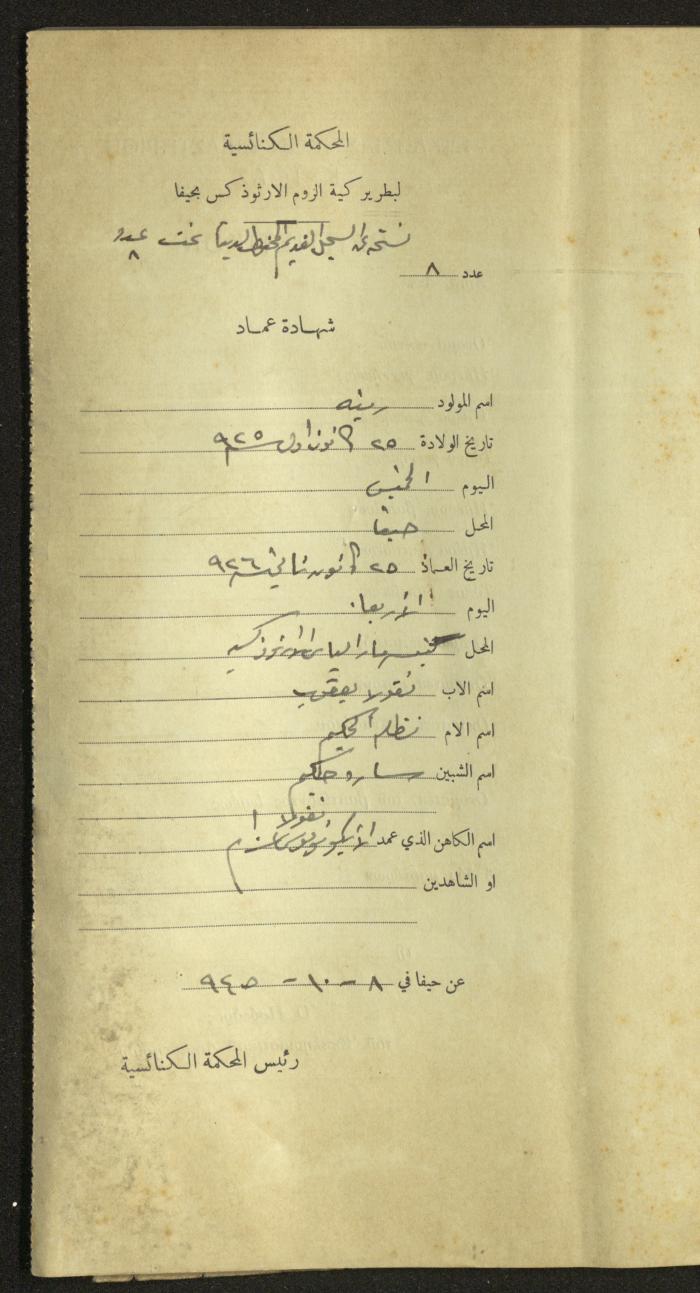 المحكمة الكنائسية
لبطريركية الروم الارثوذكس بحيفا
نسخة عن السجل القديم المحفوظ لدينا تحت عدد ٨
عدد ٨
شهادة عماد
اسم المولود رينه
تاريخ الولادة ٢٥ كانون اول سنة ٩٢٥
اليوم الخميس
المحل حيفا
تاريخ العماد ٢٥ كانون ثاني سنة ٩٢٦
اليوم الأربعاء
المحل كنيسة مار الياس الارثوذكسية
اسم الاب نقولا يعقوب
اسم الام الحكيم
اسم الشبين حكيم
نقولا
اسم الكاهن الذي عمد
او الشاهدين
عن حيفا في ٨ - ١٠ - ٩٤٥
رئيس المحكمة الكنائسية